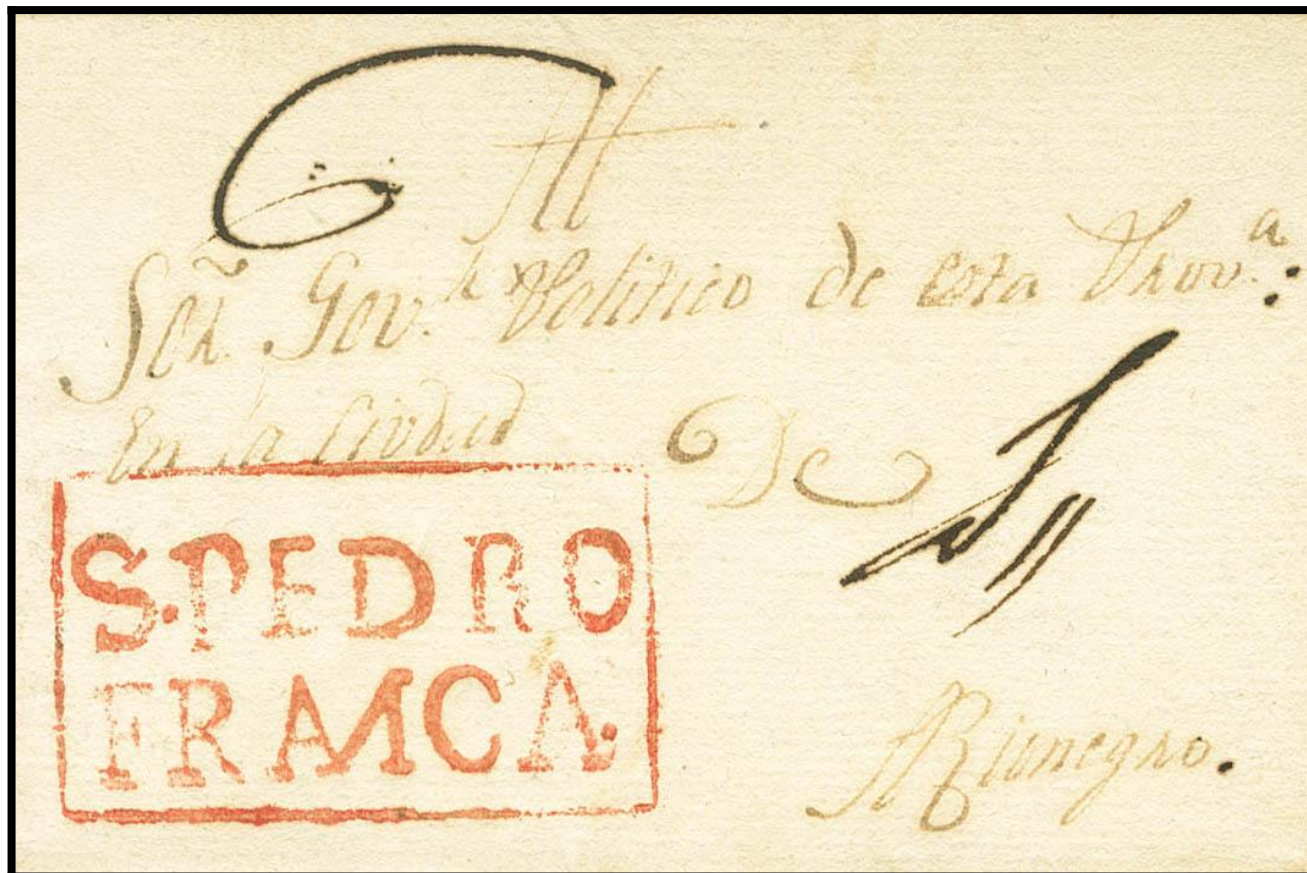 Al
Señ.r Gov.r Politico de esta Prov.a:
En la Ciudad De
S.PEDRO
FRANCA.
Rionegro.